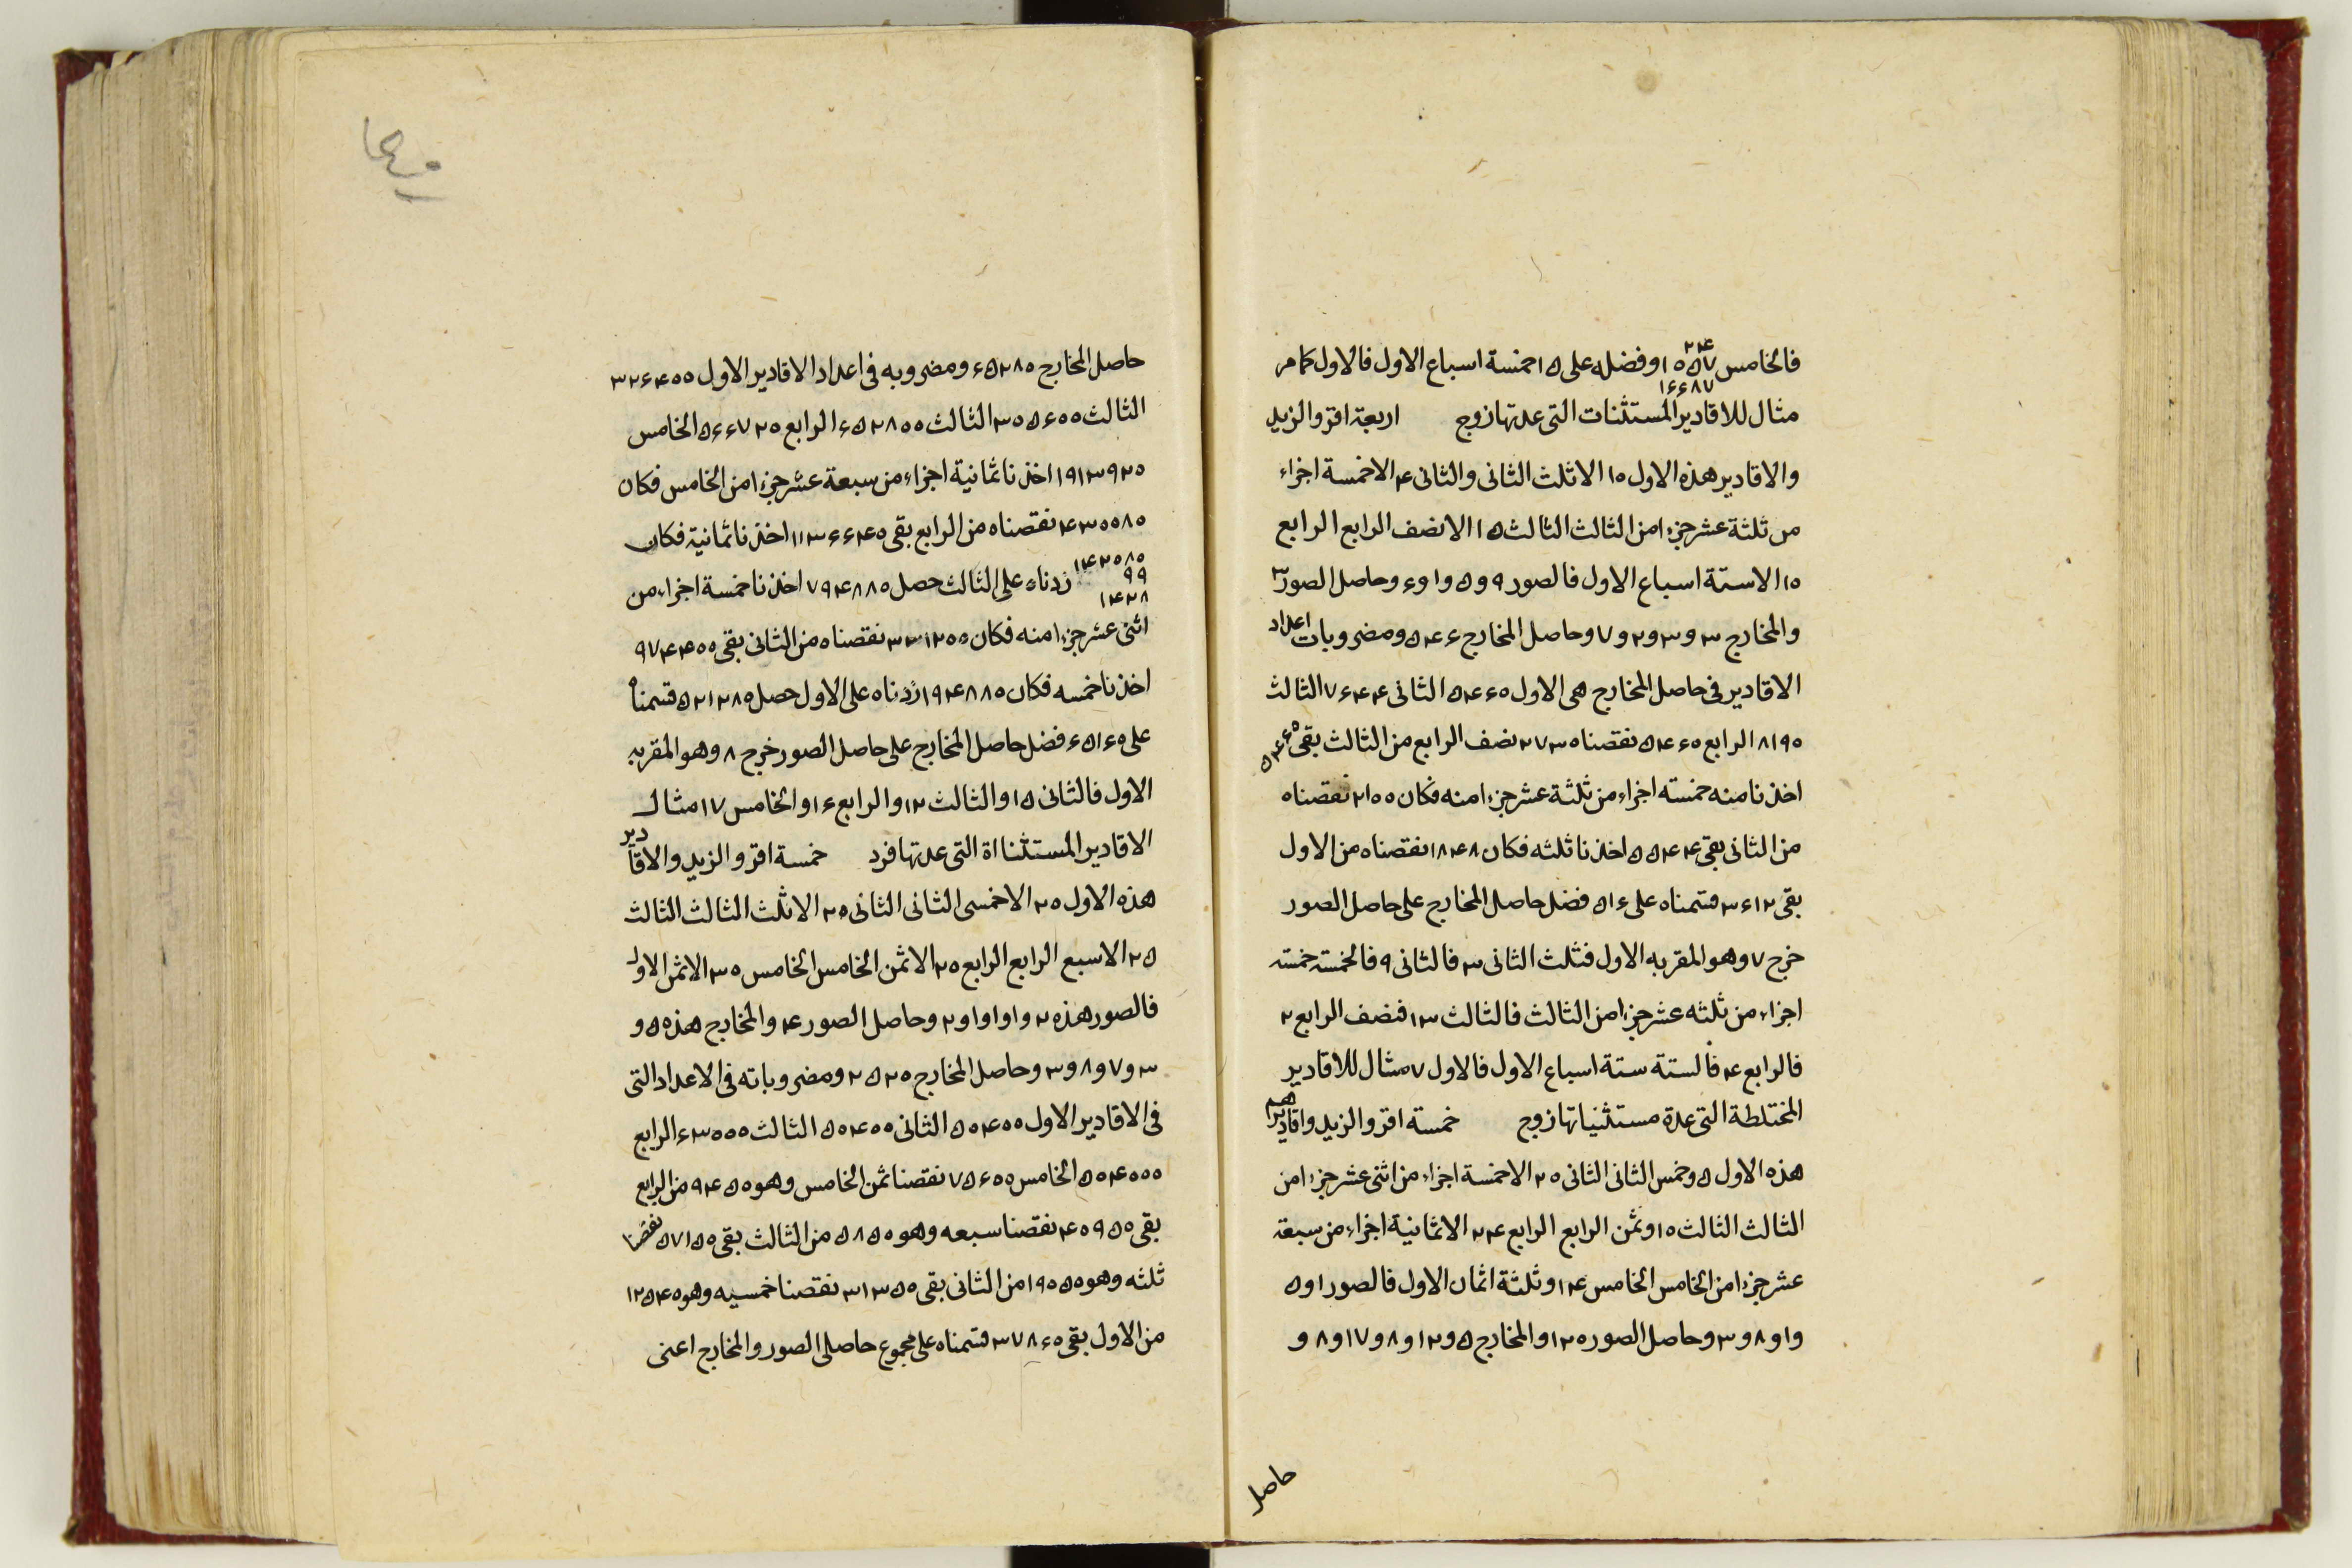 فالخامس ۱۰۵۷ وفضله على ۱۵ خمسة اسباع الاول فالاول كما مر
۲۴
۱۶۶۸۷
مثال للاقادير المستثنات التى عدتها زوج اربعة اقر والزيد
والاقادير هذه الاول ۱۰ الا ثلث الثانى والثانى ۱۴ الا خمسة اجزاء
من ثلثة عشر جزءا من الثالث الثالث ۱۵ الا نصف الرابع الرابع
۱۰ الا ستة اسباع الاول فالصور ۹ و ۵ و ۱ و ۶ وحاصل الصور ۳۰
والمخارج ۳ و ۱۳ و ۲ و ۷ وحاصل المخارج ۵۴۶ ومضروبات اعداد
الاقادير فى حاصل المخارج هى الاول ۵۴۶۰ الثانى ۷۶۴۴ الثالث
۸۱۹۰ الرابع ۵۴۶۰ نقصنا ۲۷۳۰ نصف الرابع من الثالث بقى ۵۴۶۰
اخذنا منه خمسته اجزاء من ثلثة عشر جزءا منه فكان ۲۱۰۰ نقصناه
من الثانى بقى ۵۵۴۴ اخذنا ثلثه فكان ۱۸۴۸ نقصناه من الاول
بقى ۳۶۱۲ قسمناه على ۵۱۶ فضل حاصل المخارج على حاصل الصور
خرج ۷ وهو المقر به الاول فثلث الثانى ۳ فالثانى ۹ فالخمسته خمسته
اجزاء من ثلثه عشر جزءا من الثالث فالثالث ۱۳ فنصف الرابع ۲
فالرابع ۴ فالستة ستة اسباع الاول فالاول ۷ مثال للاقادير
المختلطة التى عدة مستثنياتها زوج خمسته اقر والزيد واقاديرهم
هذه الاول ۵ وخمس الثانى الثانى ۲۰ الا خمسة اجزاء من اثنى عشر جزءا من
الثالث الثالث ۱۰ وثمن الرابع الرابع ۲۴ الا ثمانية اجزاء من سبعة
عشر جزءا من الخامس الخامس ۱۴ وثلثة اثمان الاول فالصور ۱ و ۵
و ۱ و ۸ و ۳ وحاصل الصور ۱۲۰ والمخارج ۵ و ۱۲ و ۸ و ۱۷ و ۸ و
حاصل
حاصل المخارج ۶۵۲۸۰ ومضروبه فى اعداد الاقادير الاول ۳۲۶۴۰۰
الثالث ۱۳۰۵۶۰۰ الثالث ۶۵۲۸۰۰ الرابع ۱۵۶۶۷۲۰ الخامس
۹۱۳۹۲۰ اخذنا ثمانية اجزاء من سبعة عشر جزءا من الخامس فكان
۴۳۰۰۸۰ نقصناه من الرابع بقى ۱۱۳۶۶۴۰ اخذنا ثمانية فكان
۱۴۲۰۸۰ زدناه على الثالث حصل ۷۹۴۸۸۰ اخذنا خمسة اجزاء من
۹۹
۱۴۲۸
اثنى عشر جزءا منه فكان ۳۳۱۲۰۰ نقصناه من الثانى بقى ۹۷۴۴۰۰
اخذنا خمسه فكان ۱۹۴۸۸۰ زدناه على الاول حصل ۵۲۱۲۸۰ قسمناه
على ۶۵۱۶۰ فضل حاصل المخارج على حاصل الصور خرج ۸ وهو المقر به
الاول فالثانى ۱۵ والثالث ۱۲ والرابع ۱۶ والخامس ۱۷ مثال
الاقادير المستثناة التى عدتها فرد خمسة اقر والزيد والاقادير
هذه الاول ۲۰ الا خمسى الثانى الثانى ۲۰ الا ثلث الثالث الثالث
۲۵ الا سبع الرابع الرابع ۲۰ الا ثمن الخامس الخامس ۳۰ الا ثمن الاول
فالصور هذه ۲ و ۱ و ۱ و ۱ و ۲ وحاصل الصور ۴ والمخارج هذه ۵ و
۳ و ۷ و ۸ و ۳ وحاصل المخارج ۲۵۲۰ ومضروباته فى الاعداد التى
فى الاقادير الاول ۵۰۴۰۰ الثانى ۵۰۴۰۰ الثالث ۶۳۰۰۰ الرابع
۵۰۴۰۰۰ الخامس ۷۵۶۰۰ نقصنا ثمن الخامس وهو ۹۴۵۰ من الرابع
بقى ۴۰۹۵۰ نقصنا سبعه وهو ۵۸۵۰ من الثالث بقى ۵۷۱۵۰ نقصنا
ثلثه وهو ۱۹۰۵۰ من الثانى بقى ۳۱۳۵۰ نقصنا خمسيه وهو ۱۲۵۴۰
من الاول بقى ۳۷۸۶۰ قسمناه على مجموع حاصلى الصور والمخارج اعنى